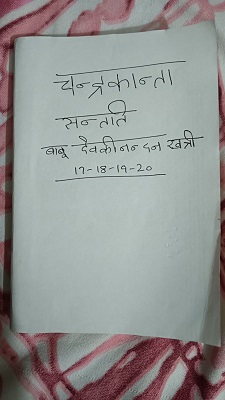 चन्द्रकान्ता
सन्तति
बाबू देवकीनन्दन खत्री
17-18-19-20